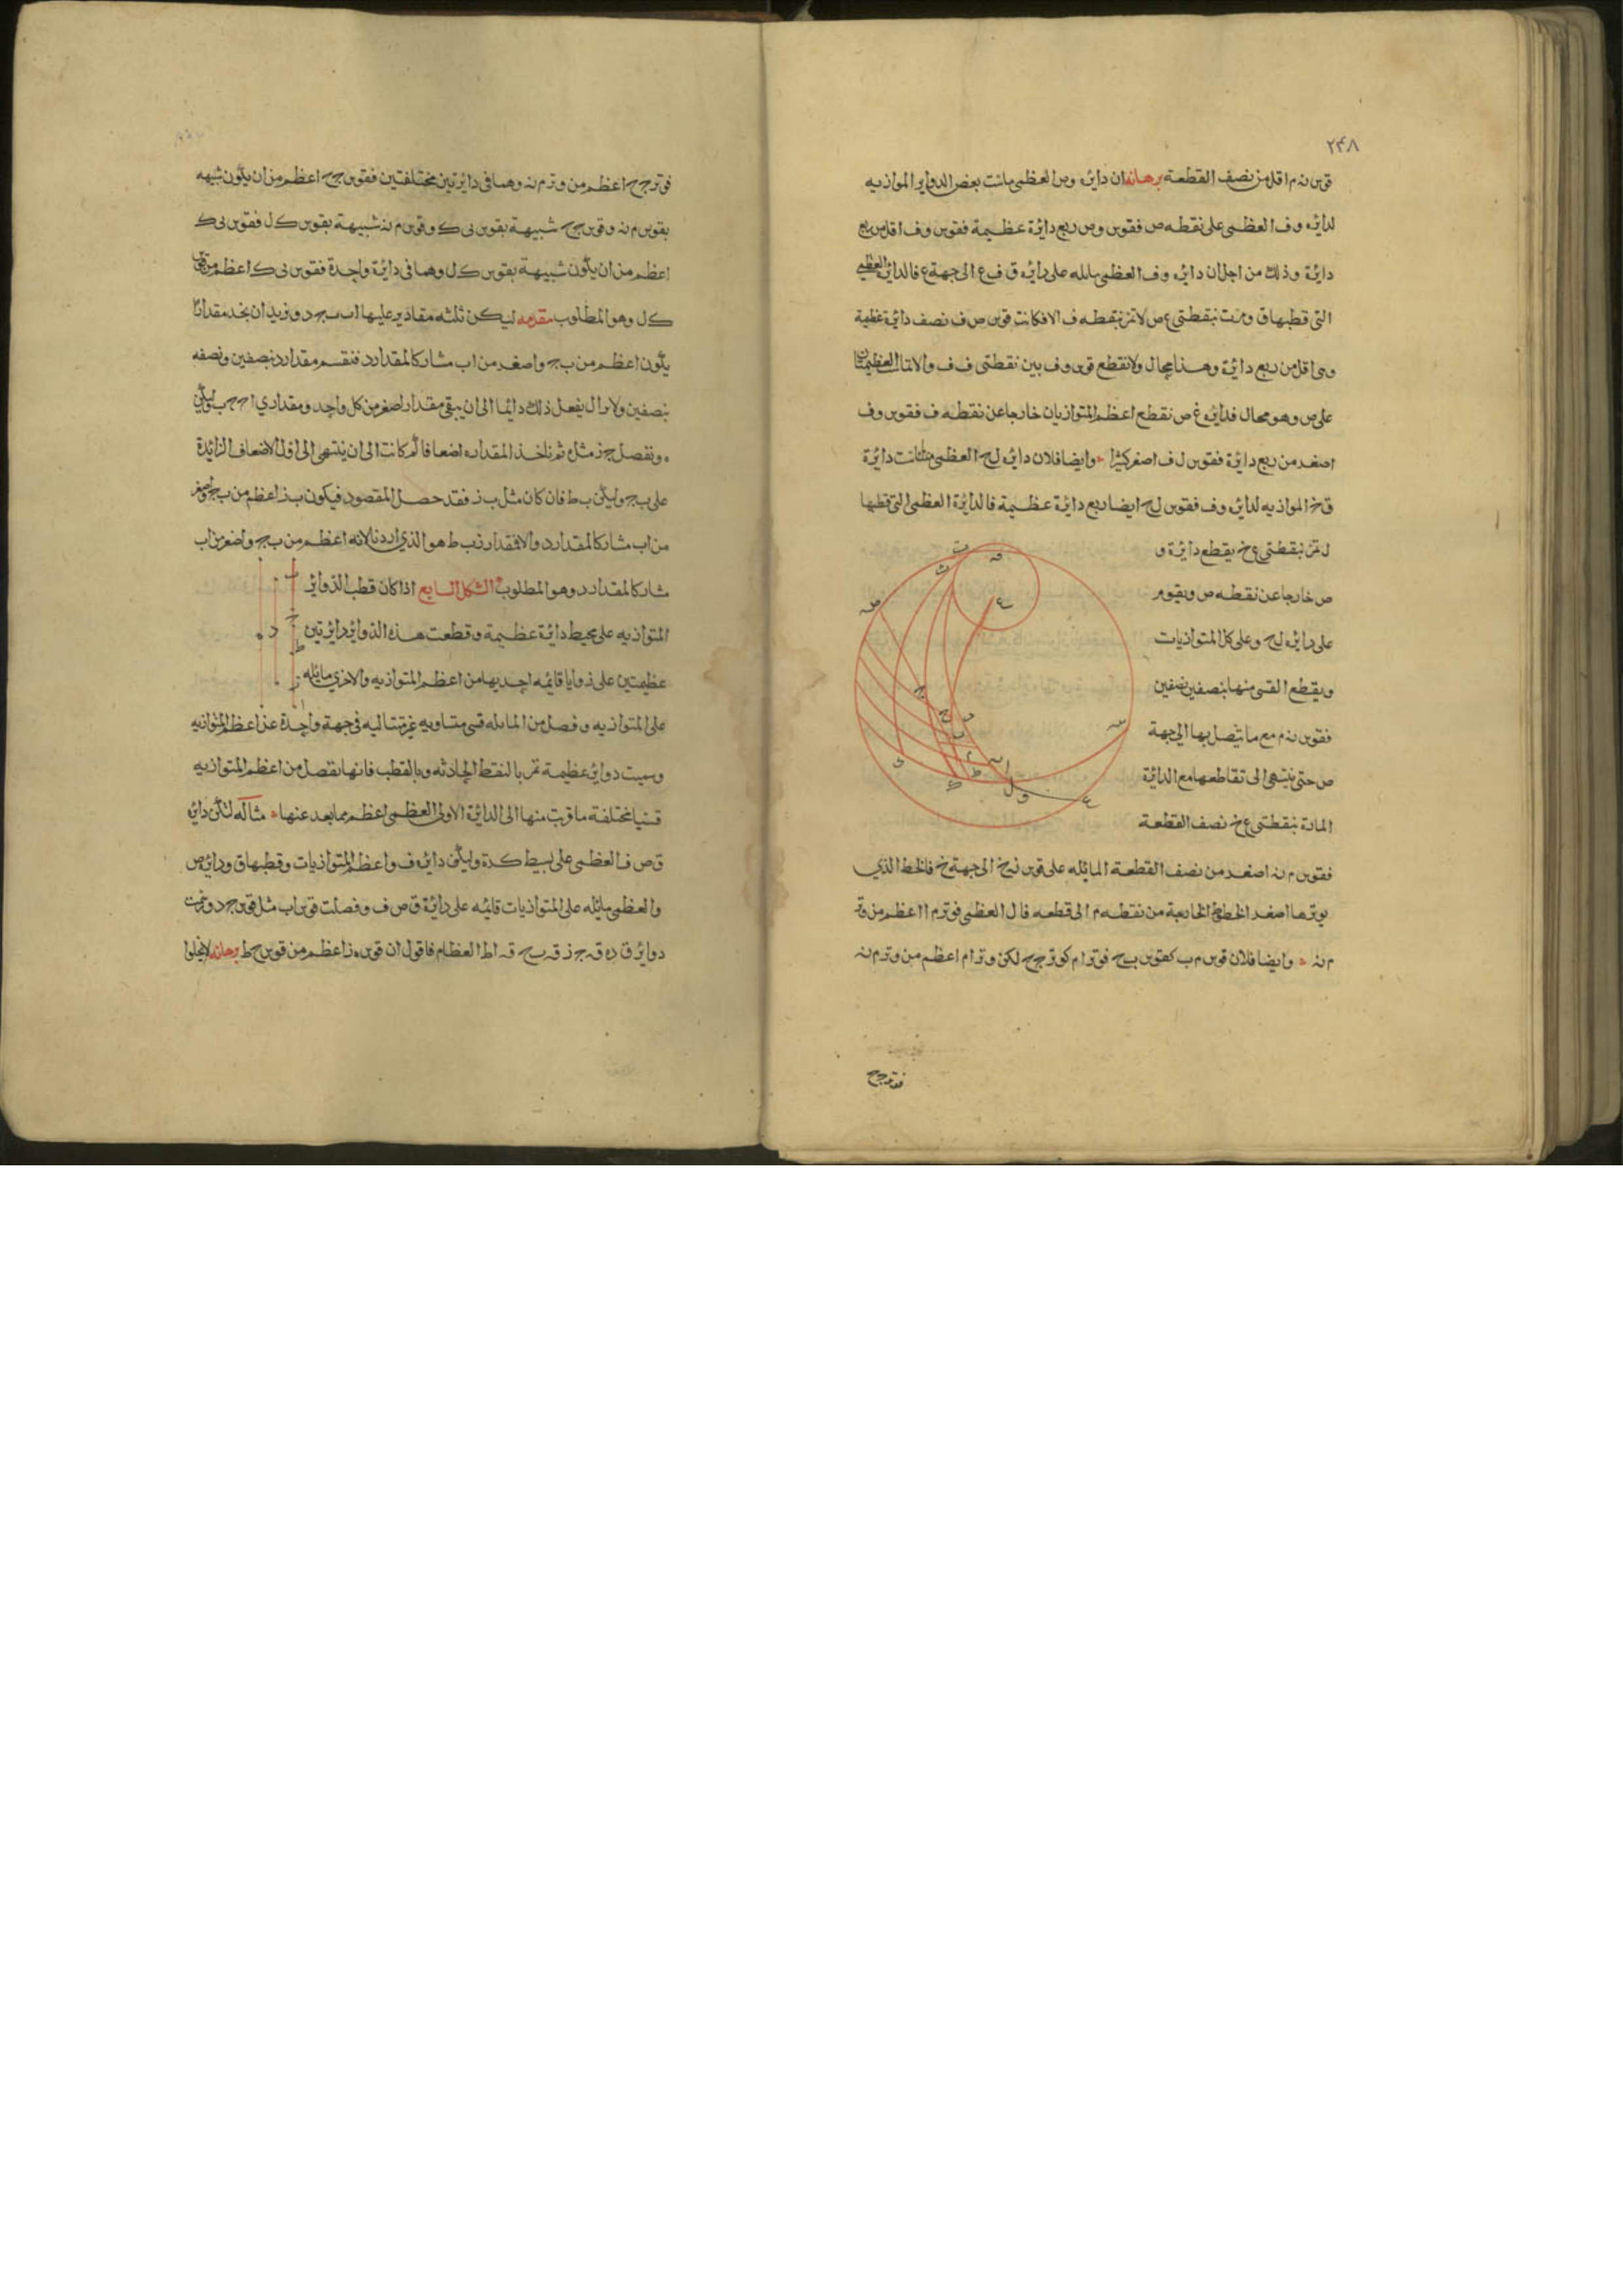 ٢٤٨
قوس نه م اقل من نصف القطعة برهانه ان دائرة وص العظمى ماست بعض الدواير الموازيه
لدائرة وف العظمى على نقطه ص فقوس وص ربع دائرة عظيمة فقوس وف اقل من ربع
دائرة وذلك من اجل ان دائره وف العظمى مايله على دائره ق ف ع الى جهة ع فالدائرة العظمى
التى قطبها ق ومرت بنقطتى ع ص لا تمر بنقطه ف والا فكانت قوس ص ف نصف دائرة عظيمة
وهى اقل من ربع دائرة وهذا محال ولا تقطع قوس وف بين نقطتى ف ف والا تماست العظيمتان
على ص وهو محال فدائره ع ص تقطع اعظم المتوازيات خارجا عن نقطه ف فقوس وف
اصغر من ربع دائرة فقوس ل ف اصغر كثيرا وايضا فلان دائره ل ح العظمى ماست دائرة
ق خ الموازيه لدائره وف فقوس ل ح ايضا ربع دائرة عظيمة فالدائرة العظمى التى قطبها
ل تمر بنقطتى ع خ يقطع دائرة و
ص خارجا عن نقطه ص ويقوم
على دائره ل ح وعلى كل المتوازيات
ويقطع القسى منها بنصفين نصفين
فقوس نه م مع ما يتصل بها الى جهة
ص حتى ينتهى الى تقاطعها مع الدائرة
المارة بنقطتى ع خ نصف القطعة
فقوس م نه اصغر من نصف القطعة المائله على قوس ن خ الى جهة خ فالخط الذى
يوترها اصغر الخطوط الخارجة من نقطه م الى قطعه ف ا ل العظمى فوتر م ا اعظم من وتر
م نه وايضا فلان قوس م ب كقوس ب ح فوتر ا م كوتر ج ح لكن وتر ا م اعظم من وتر م نه
فوتر ج ح
فوتر ج ح اعظم من وتر م نه وهما فى دائرتين مختلفتين فقوس ج ح اعظم من ان يكون شبيهه
بقوس م نه وقوس ج ح شبيهة بقوس ى ك وقوس م نه شبيهة بقوس ك ل فقوس ى ك
اعظم من ان يكون شبيهة بقوس ك ل وهما فى دائرة واحدة فقوس ى ك اعظم من قوس
ك ل وهو المطلوب مقدمه ليكن ثلثه مقادير عليها اب ب ج د ونريد ان نجد مقدارا
يكون اعظم من ب ج واصغر من اب مشاركا لمقدار د فنقسم مقدار د بنصفين ونصفه
بنصفين ولا يزال يفعل ذلك دائما الى ان يبقى مقدار اصغر من كل واحد ومقدارى ا ج ج ب وليكن
ه ونفصل ج ز مثل ه ثم ناخذ المقدار ه اضعافا كم كانت الى ان ينتهى الى اول الاضعاف الزائدة
على ب ج وليكن ب ط فان كان مثل ب ز فقد حصل المقصود فيكون ب ز اعظم من ب ج واصغر
من اب مشاركا لمقدار د والا فمقدار ز ب ط هو الذى اردنا لانه اعظم من ب ج واصغر من اب
مشاركا لمقدار د وهو المطلوب الشكل السابع اذا كان قطب الدوائر
المتوازيه على محيط دائرة عظيمة وقطعت هذه الدوائر دائرتين
عظيمتين على زوايا قايمه احديهما من اعظم المتوازيه والاخرى مائله
على المتوازيه وفصل من المائله قسى متساويه غير متتاليه فى جهة واحدة عن اعظم المتوازيه
ورسمت دوائر عظيمة تمر بالنقط الحادثه وبالقطب فانها تفصل من اعظم المتوازيه
قسيا مختلفة ما قرب منها الى الدائرة الاولى العظمى اعظم مما بعد عنها مثاله لتكن دائره
ق ص ف العظمى على بسيط كرة وليكن دائره ف و اعظم المتوازيات وقطبها ق ودائره ص
و العظمى مائله على المتوازيات قائمه على دائرة ق ص ف وفصلت قوس اب مثل قوس ج د ومرت
دوائر ق د ه ق ج ز ق ب ح ق ا ط العظام فاقول ان قوس ه ز اعظم من قوس ح ط برهانه لا يخلوا